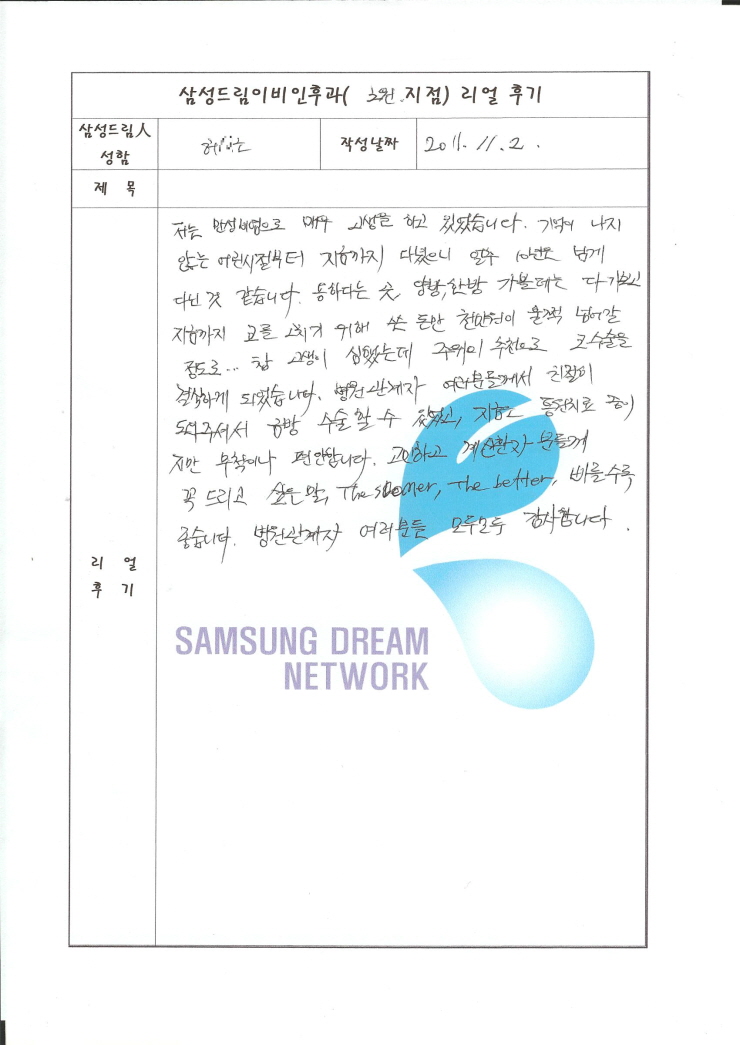 삼성드림이비인후과( 지점) 리얼 후기
삼성드림人
성함
작성날짜 2011. 11. 2.
제 목
저는 만성비염으로 매우 고생을 하고 있었습니다. 기억이 나지
않는 어린시절부터 지금까지 다녔으니 10년은 넘게
다닌 것 같습니다. 용하다는 곳, 양방,한방 가볼데는 다 가보고
지금까지 코를 고치기 위해 쓴 돈만 천만원이 훌쩍 넘어갈
정도로... 참 고생이 심했는데 주위의 추천으로 코수술을
결심하게 되었습니다. 병원관계자 여러분들께서 친절히
도와주셔서 금방 수술할 수 있었고, 지금은 통원치료 중이
지만 무척이나 편안합니다. 고민하고 계신환자 분들께
꼭 드리고 싶은 말, The sooner, The better, 빠를수록
좋습니다. 병원관계자 여러분들 모두모두 감사합니다.
리 얼
후 기
SAMSUNG DREAM
NETWORK